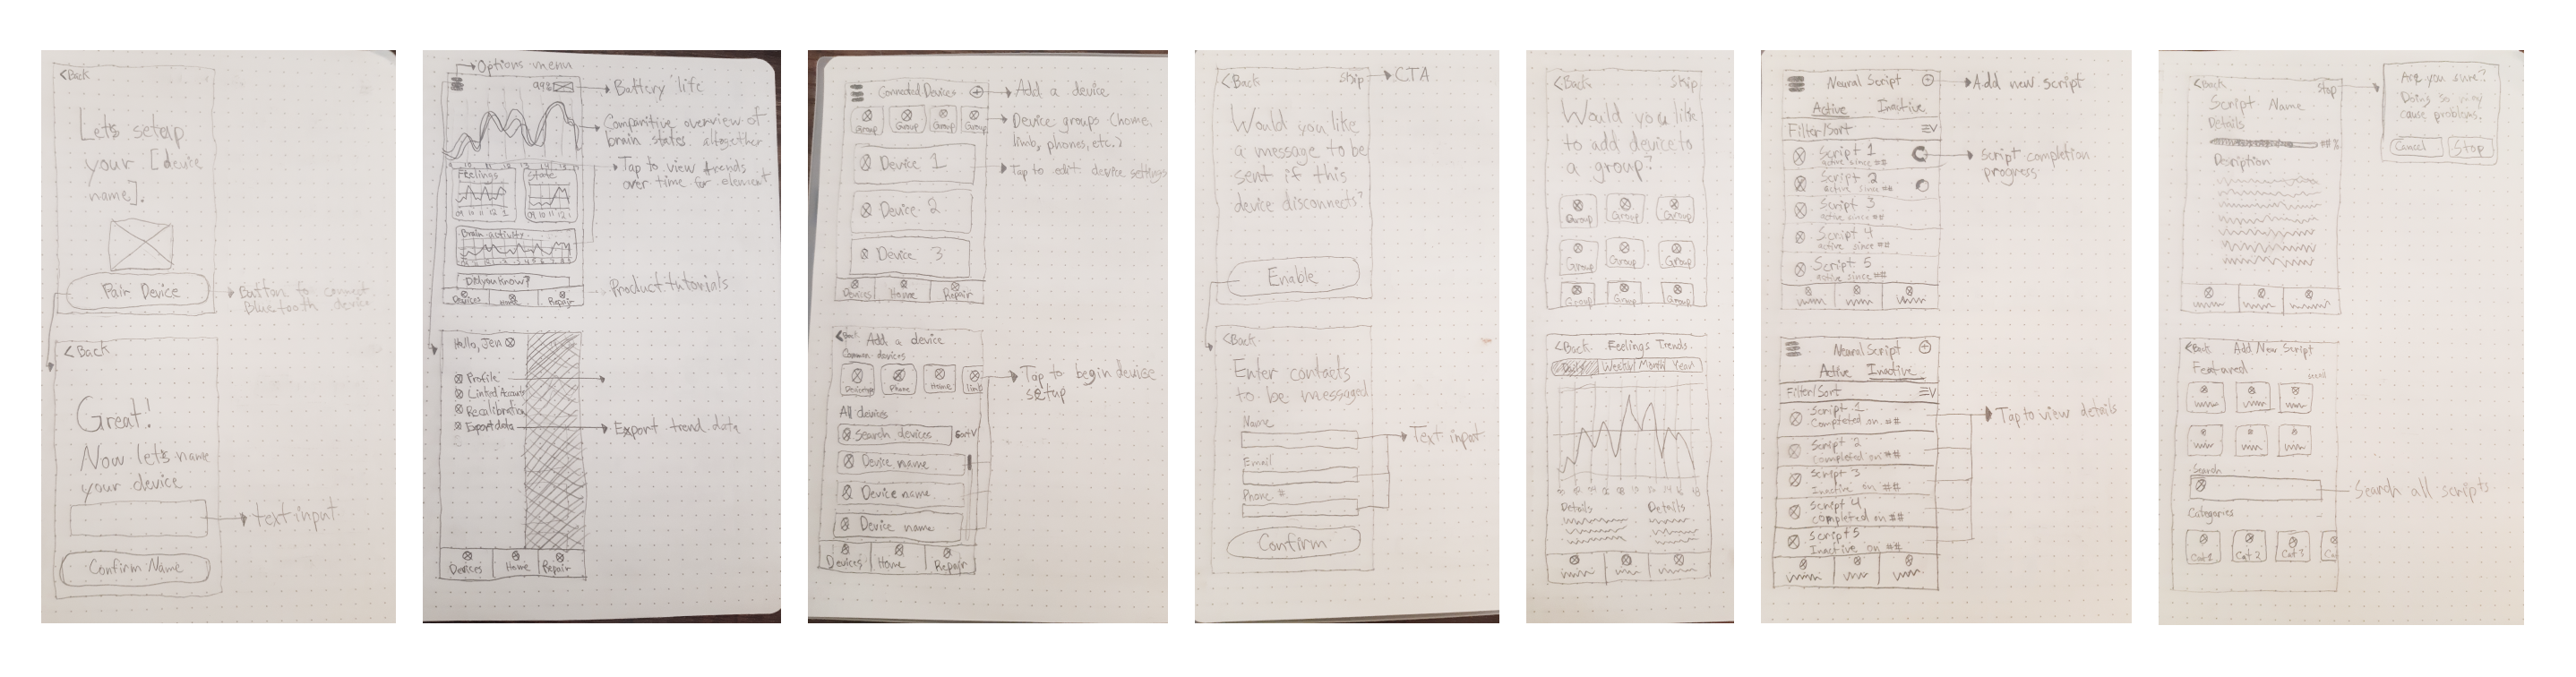 <Back
Lets setup
your [device
name].
Pair Device
Button to connect
bluetooth device
<Back
Great!
Now lets name
your device
text input
Confirm Name
Options menu
99%
Battery life
Comparitive overview of
brain states altogether
Tap to view trends
over time for element
Feelings
State
09 10 11 12 1
09 10 11 12 1
Brain activity
Did you know?
Product tutorials
Devices Home Repair
Hello, Jen
Profile
Linked Accounts
Recalibration
Export data
Export trend data
Devices Home Repair
Connected Devices
Add a device
Group Group Group Group
Device groups (home,
limb, phones, etc.)
Device 1
Tap to edit device settings
Device 2
Device 3
Devices Home Repair
<Back Add a device
Common devices
Desktop Phone Home limb
Tap to begin device
setup
All devices
Search devices Sort V
Device name
Device name
Device name
Devices Home Repair
<Back Skip
CTA
Would you like
a message to be
sent if this
device disconnects?
Enable
<Back
Enter contacts
to be messaged
Name
Email
Text input
Phone #
Confirm
<Back Skip
Would you like
to add device to
a group?
Group Group Group
Group Group Group
Group Group Group
<Back Feelings Trends
Daily Weekly Month Year
Details Details
Neural Script
Add new script
Active Inactive
Filter/Sort
Script 1
active since ##
Script completion
progress
Script 2
active since ##
Script 3
active since ##
Script 4
active since ##
Script 5
active since ##
Neural Script
Active Inactive
Filter/Sort
Script 1
Completed on ##
Tap to view details
Script 2
completed on ##
Script 3
Inactive on ##
Script 4
completed on ##
Script 5
Inactive on ##
<Back Stop
Script Name
Details
## %
Description
Are you sure?
Doing so may
cause problems.
Cancel Stop
<Back Add New Script
Featured
Search
Search all scripts
Categories
Cat 1 Cat 2 Cat 3 Cat